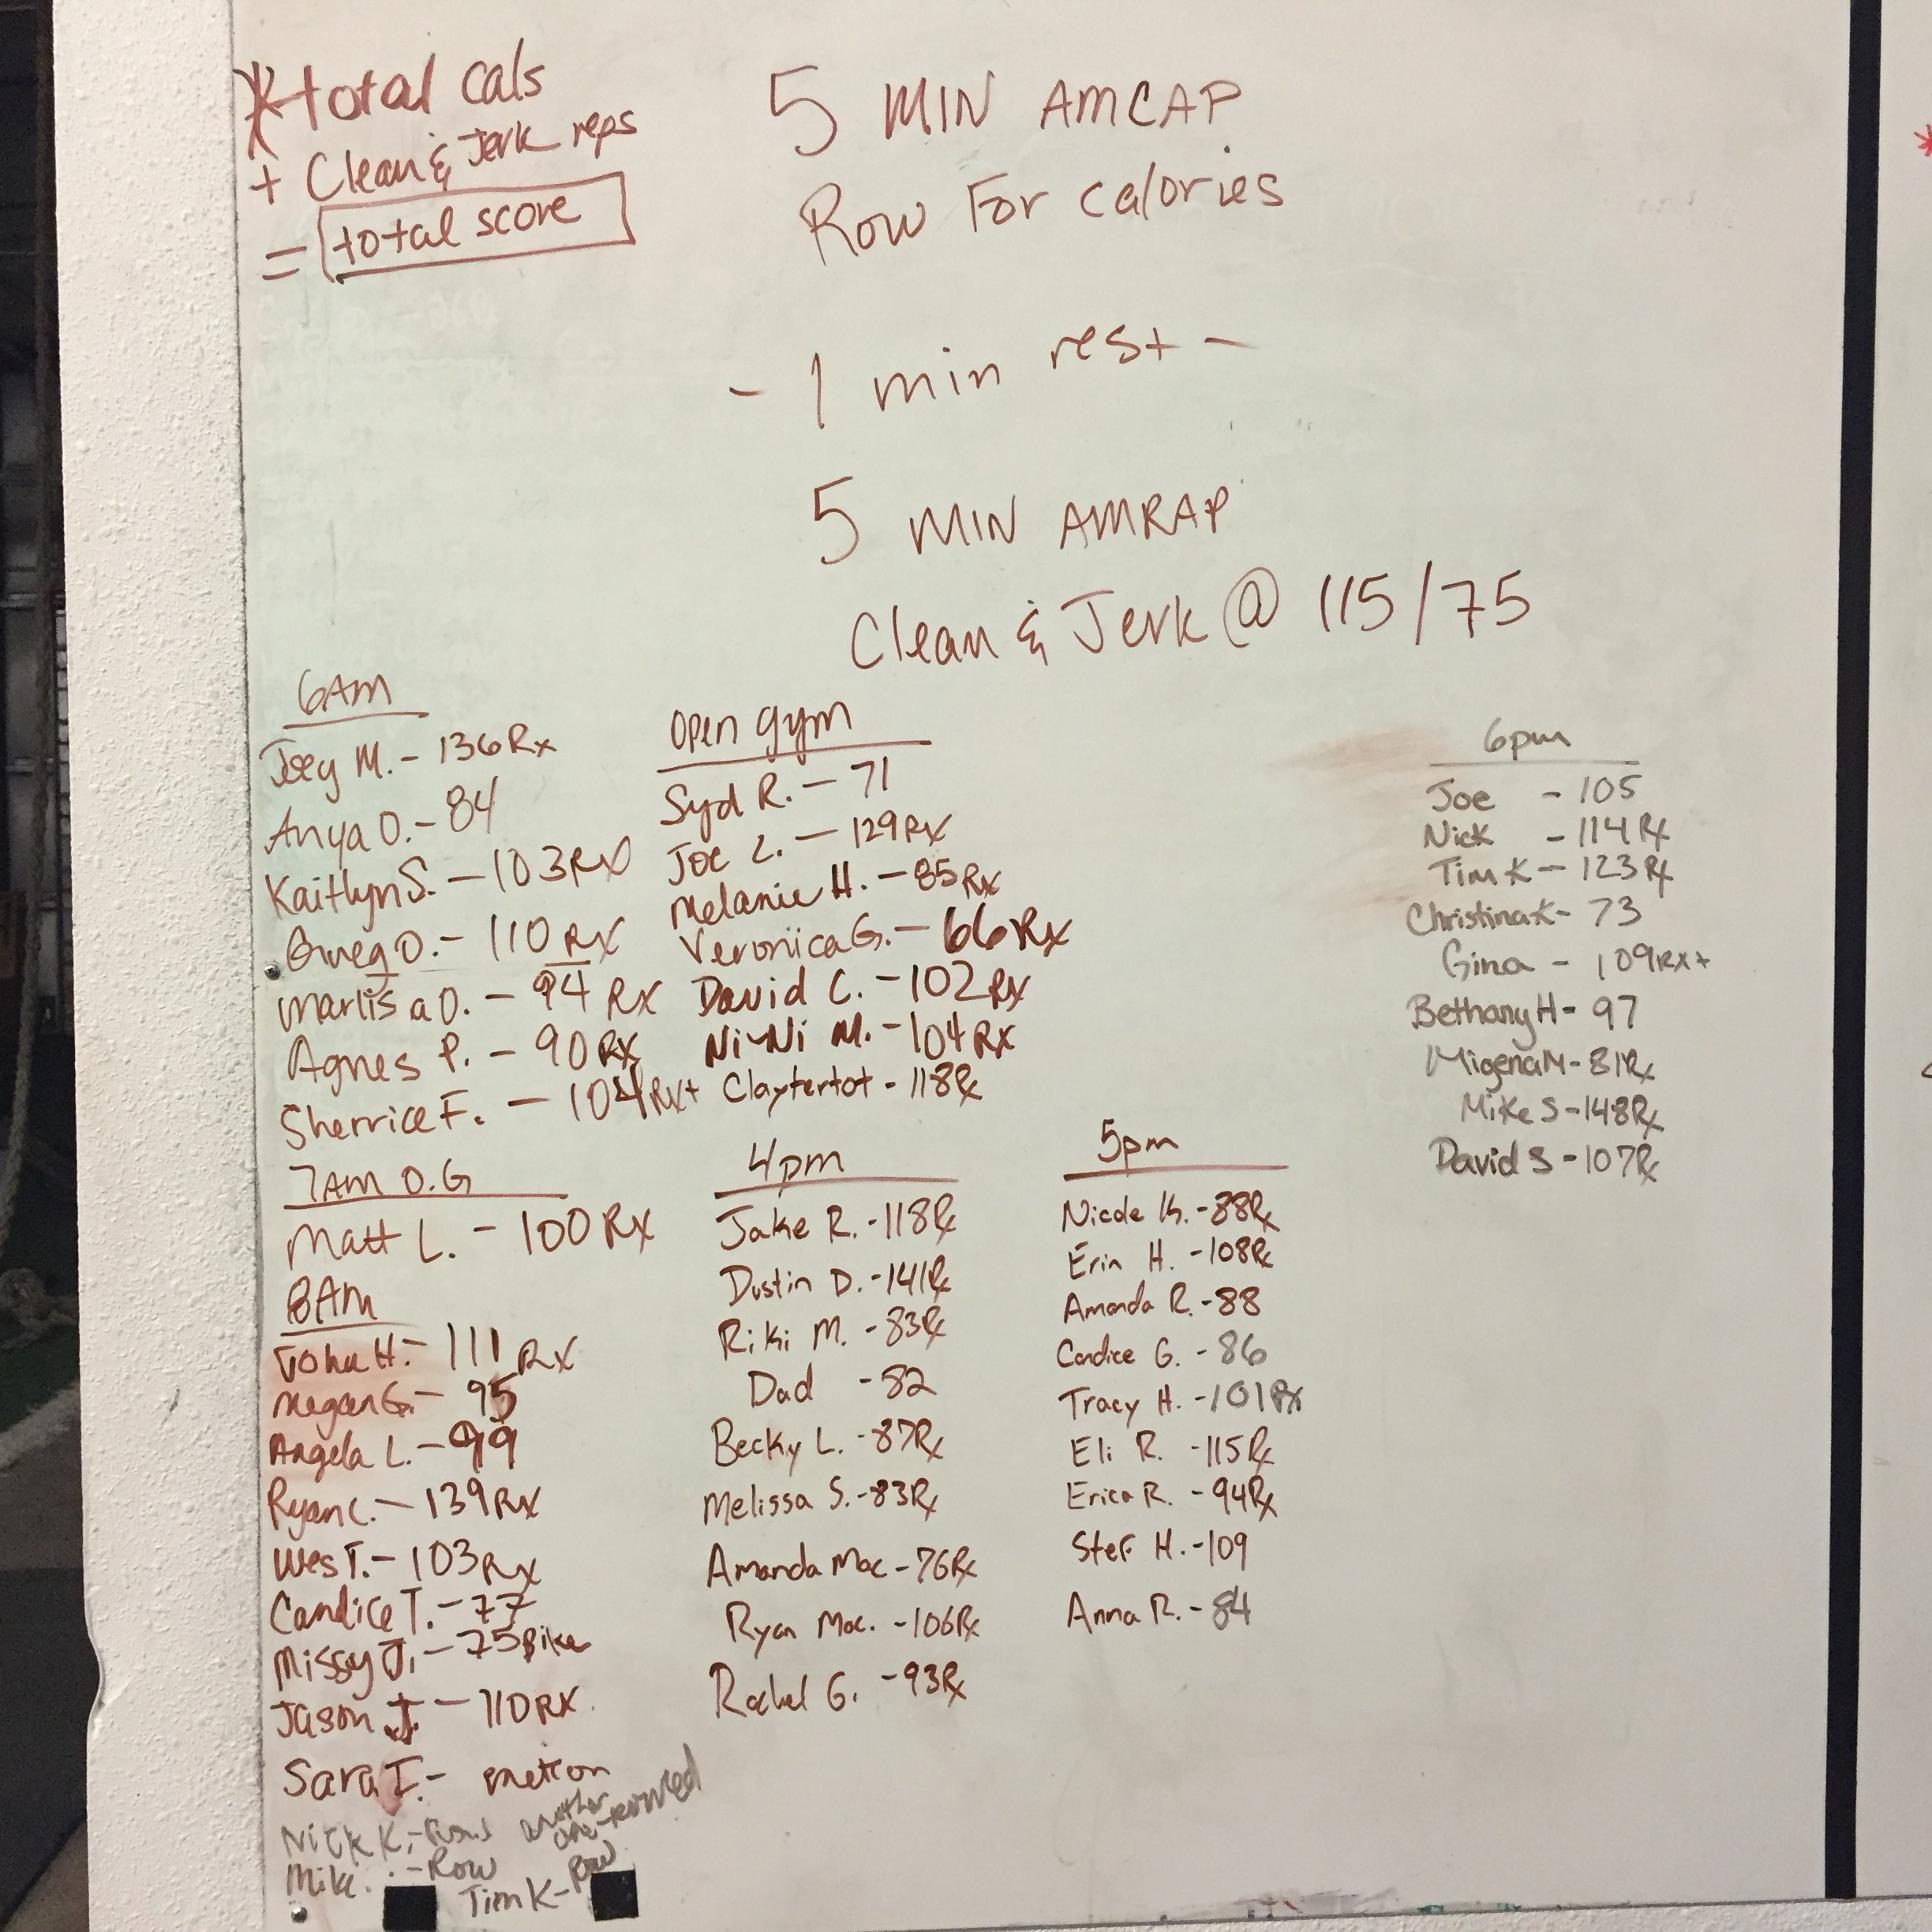 *total cals
+ Clean & Jerk reps
= total score
5 MIN AMCAP
Row For calories
- 1 min rest -
5 MIN AMRAP
Clean & Jerk @ 115/75
6AM
Joey M. - 136 Rx
Anya O. - 84
Kaitlyn S. - 103 RX
Greg O. - 110 RX
Marlisa O. - 94 RX
Agnes P. - 90 RX
Sherrice F. - 104 RX+
Open gym
Syd R. - 71
Joe L. - 129 RX
Melanie H. - 85 Rx
Veronica G. - 66 Rx
David C. - 102 RX
Ni-Ni M. - 104 RX
Claytertot - 118 Rx
7AM O.G
Matt L. - 100 Rx
8AM
John H. - 111 RX
Megan G. - 95
Angela L. - 99
Ryan C. - 139 RX
Wes T. - 103 RX
Candice T. - 77
Missy J. - 75 Bike
Jason J. - 110 RX
Sara I. -
Nick K. - another one-rowed
Mike - Row
Tim K - Row
4pm
Jake R. - 118 Rx
Dustin D. - 141 Rx
Riki M. - 83 Rx
Dad - 82
Becky L. - 87 Rx
Melissa S. - 83 Rx
Amanda Mac - 76 Rx
Ryan Mac. - 106 Rx
Rachel G. - 93 Rx
5pm
Nicole K. - 88 Rx
Erin H. - 108 Rx
Amanda R. - 88
Candice G. - 86
Tracy H. - 101 Rx
Eli R. - 115 Rx
Erica R. - 94 Rx
Stef H. - 109
Anna R. - 84
6pm
Joe - 105
Nick - 114 Rx
Tim K - 123 Rx
Christina K - 73
Gina - 109 RX+
Bethany H - 97
Migena M - 81 Rx
Mike S - 148 Rx
David S - 107 Rx